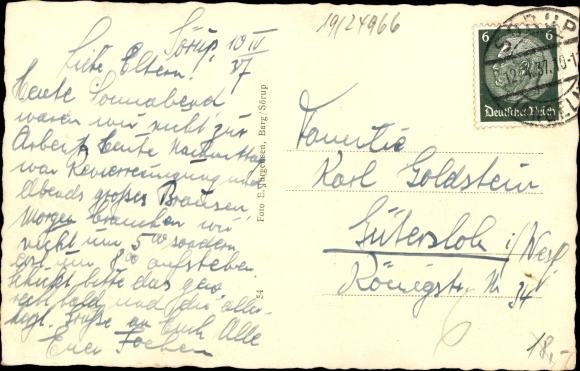 19124966
Sörup, 10 IV
37
Liebe Eltern!
Heute Sonnabend
waren wir nicht zur
Arbeit, heute Nachmittag
war Revierreinigung und
Abends großes Brausen.
Morgen brauchen wir
nicht um 5 00 sondern
erst um 8 00 aufstehen
schickt bitte das
recht bald und die aller
Grüße an Euch Alle
Euer
Foto E. Jürgensen, Barg/Sörup
54
6 6
Deutsches Reich
SÖRUP
12.4.37
Familie
Karl Goldstein
Gütersloh i/Westf.
Königstr. Nr
34
18,-